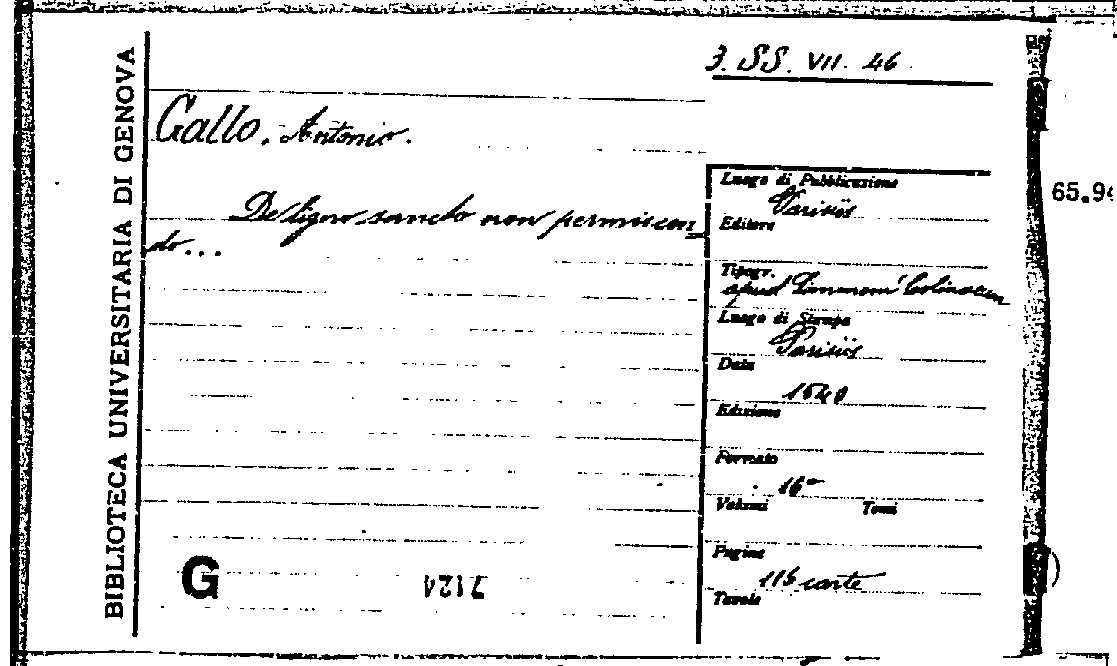 BIBLIOTECA UNIVERSITARIA DI GENOVA
3. SS. VII. 46.
Gallo, Antonio.
De ligno sancto non permiscen
do...
Luogo di Pubblicazione
Parisiis
Editore
Tipogr.
apud Simonem Colinaeum
Luogo di Stampa
Parisiis
Data
1540
Edizione
Formato
16°
Volumi Tomi
Pagine
116 carte
Tavole
G
7124
65.9